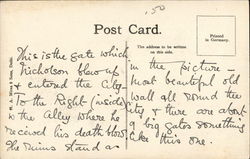 150
Post Card.
The address to be written on this side.
Printed in Germany.
H. A. Mirza & Sons, Delhi.
This is the gate which
Nicholson blew up
& entered the City
To the Right (inside)
is the Alley where he
received his death blow
The ruins stand as
in the picture —
most beautiful old
wall all round the
city & there are about
big gates something
like this one.